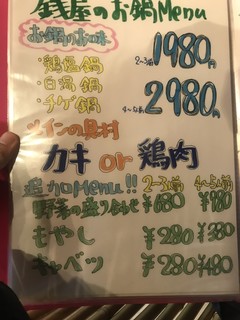 銭屋のお鍋Menu
お鍋のお味
2~3前 1980円
・鶏塩鍋
・白湯鍋
・チゲ鍋
2980円
メインの具材
カキ or 鶏肉
追加Menu!! 2~3前 4~5前
野菜の盛り合わせ ¥680 ¥980
もやし ¥280 ¥380
キャベツ ¥280 ¥480